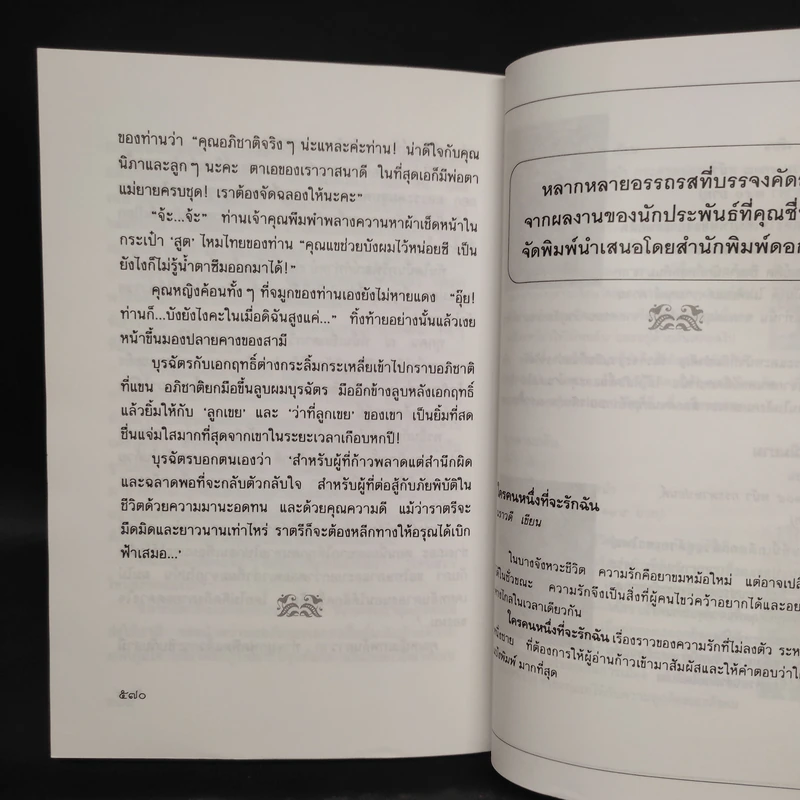 ของท่านว่า “คุณอภิชาติจริงๆ น่ะแหละค่ะท่าน! น่าดีใจกับคุณ
นิภาและลูกๆ นะคะ ตาเอของเราวาสนาดี ในที่สุดเอก็มีพ่อตา
แม่ยายครบชุด! เราต้องจัดฉลองให้นะคะ”
“จ้ะ...จ้ะ” ท่านเจ้าคุณพึมพำพลางควานหาผ้าเช็ดหน้าใน
กระเป๋า ‘สูต’ ไหมไทยของท่าน “คุณแขช่วยบังผมไว้หน่อยซี เป็น
ยังไงก็ไม่รู้น้ำตาซึมออกมาได้!”
คุณหญิงค้อนทั้งๆ ที่จมูกของท่านเองยังไม่หายแดง “อุ๊ย!
ท่านก็...บังยังไงคะในเมื่อดิฉันสูงแค่...” ทิ้งท้ายอย่างนั้นแล้วเงย
หน้าขึ้นมองปลายคางของสามี
บุรฉัตรกับเอกฤทธิ์ต่างกระลิ้มกระเหลี่ยเข้าไปกราบอภิชาติ
ที่แขน อภิชาติยกมือขึ้นลูบผมบุรฉัตร มืออีกข้างลูบหลังเอกฤทธิ์
แล้วยิ้มให้กับ ‘ลูกเขย’ และ ‘ว่าที่ลูกเขย’ ของเขา เป็นยิ้มที่สด
ชื่นแจ่มใสมากที่สุดจากเขาในระยะเวลาเกือบหกปี!
บุรฉัตรบอกตนเองว่า ‘สำหรับผู้ที่ก้าวพลาดแต่สำนึกผิด
และฉลาดพอที่จะกลับตัวกลับใจ สำหรับผู้ที่ต่อสู้กับภัยพิบัติใน
ชีวิตด้วยความมานะอดทน และด้วยคุณความดี แม้ว่าราตรีจะ
มืดมิดและยาวนานเท่าไหร่ ราตรีก็จะต้องหลีกทางให้อรุณได้เบิก
ฟ้าเสมอ...’
๕๗๐
หลากหลายอรรถรสที่บรรจงคัดส
จากผลงานของนักประพันธ์ที่คุณชื่
จัดพิมพ์นำเสนอโดยสำนักพิมพ์ดอก
ใครคนหนึ่งที่จะรักฉัน
เขียน
ในบางจังหวะชีวิต ความรักคือยาขมหม้อใหม่ แต่อาจเปลี
ในชั่วขณะ ความรักจึงเป็นสิ่งที่ผู้คนไขว่คว้าอยากได้และอย
ไกลในเวลาเดียวกัน
ใครคนหนึ่งที่จะรักฉัน เรื่องราวของความรักที่ไม่ลงตัว ระห
ที่ต้องการให้ผู้อ่านก้าวเข้ามาสัมผัสและให้คำตอบว่า
มากที่สุด